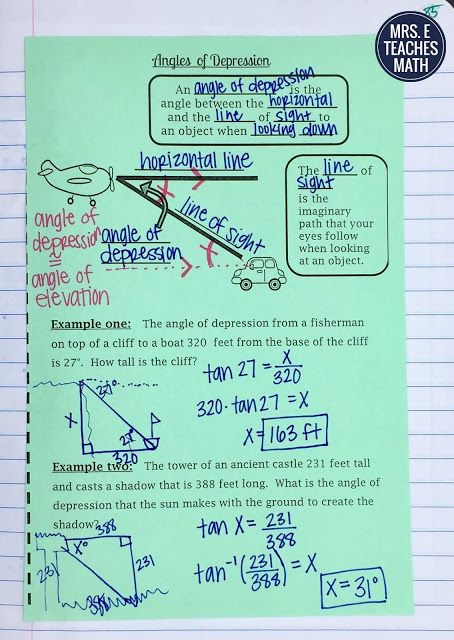 35
MRS. E
TEACHES
MATH
Angles of Depression
An angle of depression is the
angle between the horizontal
and the line of sight to
an object when looking down
horizontal line
The line of
sight
is the
imaginary
path that your
eyes follow
when looking
at an object.
line of sight
angle of
depression
angle of
depression
≅
angle of
elevation
Example one: The angle of depression from a fisherman
on top of a cliff to a boat 320 feet from the base of the cliff
is 27°. How tall is the cliff?
tan 27 = x/320
320·tan27 = x
x = 163 ft
27°
x
27°
320
Example two: The tower of an ancient castle 231 feet tall
and casts a shadow that is 388 feet long. What is the angle of
depression that the sun makes with the ground to create the
shadow?
388
x°
231
231
388
tan x = 231/388
tan⁻¹(231/388) = x
x = 31°